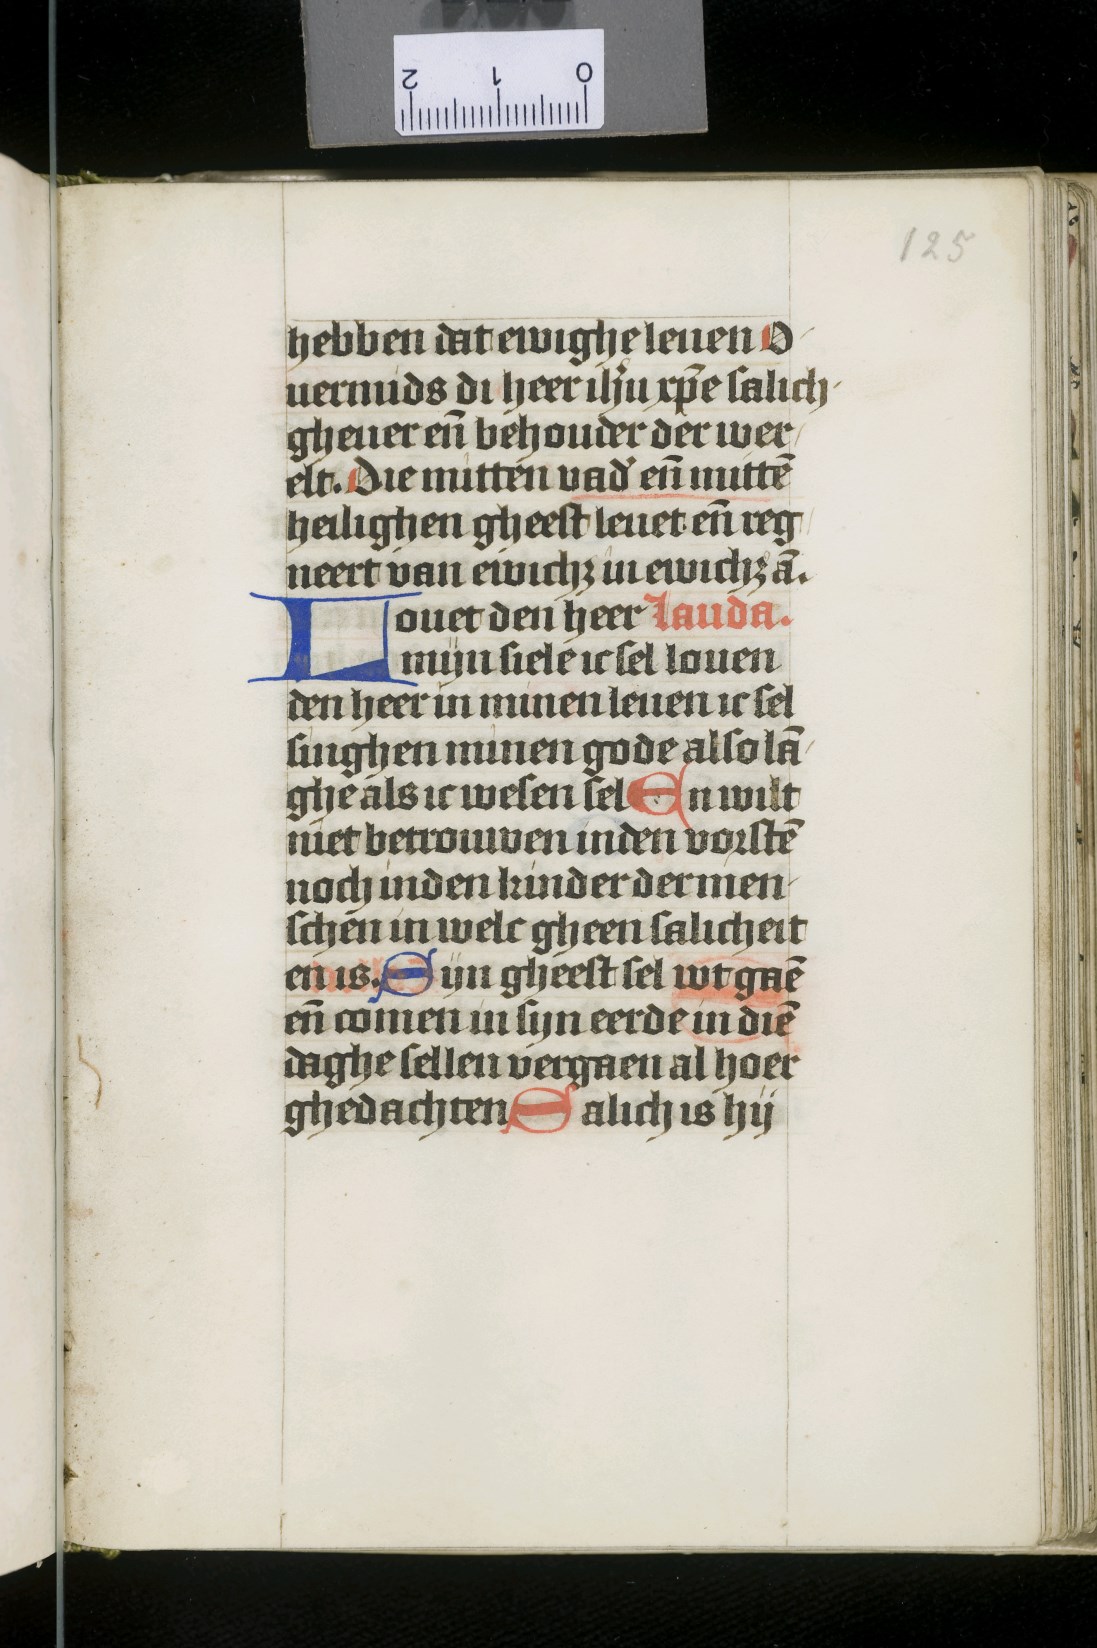 2 1 0
125
hebben dat ewighe leuen O-
uermids di heer ih̄u xp̄e salich-
gheuer en̄ behouder der wer-
elt. Die mitten vad' en̄ mittē
heilighen gheest leuet en̄ reg
neert van ewichꝫ in ewichꝫ ā.
Louet den heer Lauda.
mijn siele ic sel louen
den heer in minen leuen ic sel
singhen minen gode also lā-
ghe als ic wesen sel En wilt
niet betrouwen inden vorstē
noch inden kinder der men-
schen in welc gheen salicheit
en is. Sijn gheest sel wt gaē
en̄ comen in sijn eerde in diē
daghe sellen vergaen al hoer
ghedachten Salich is hij